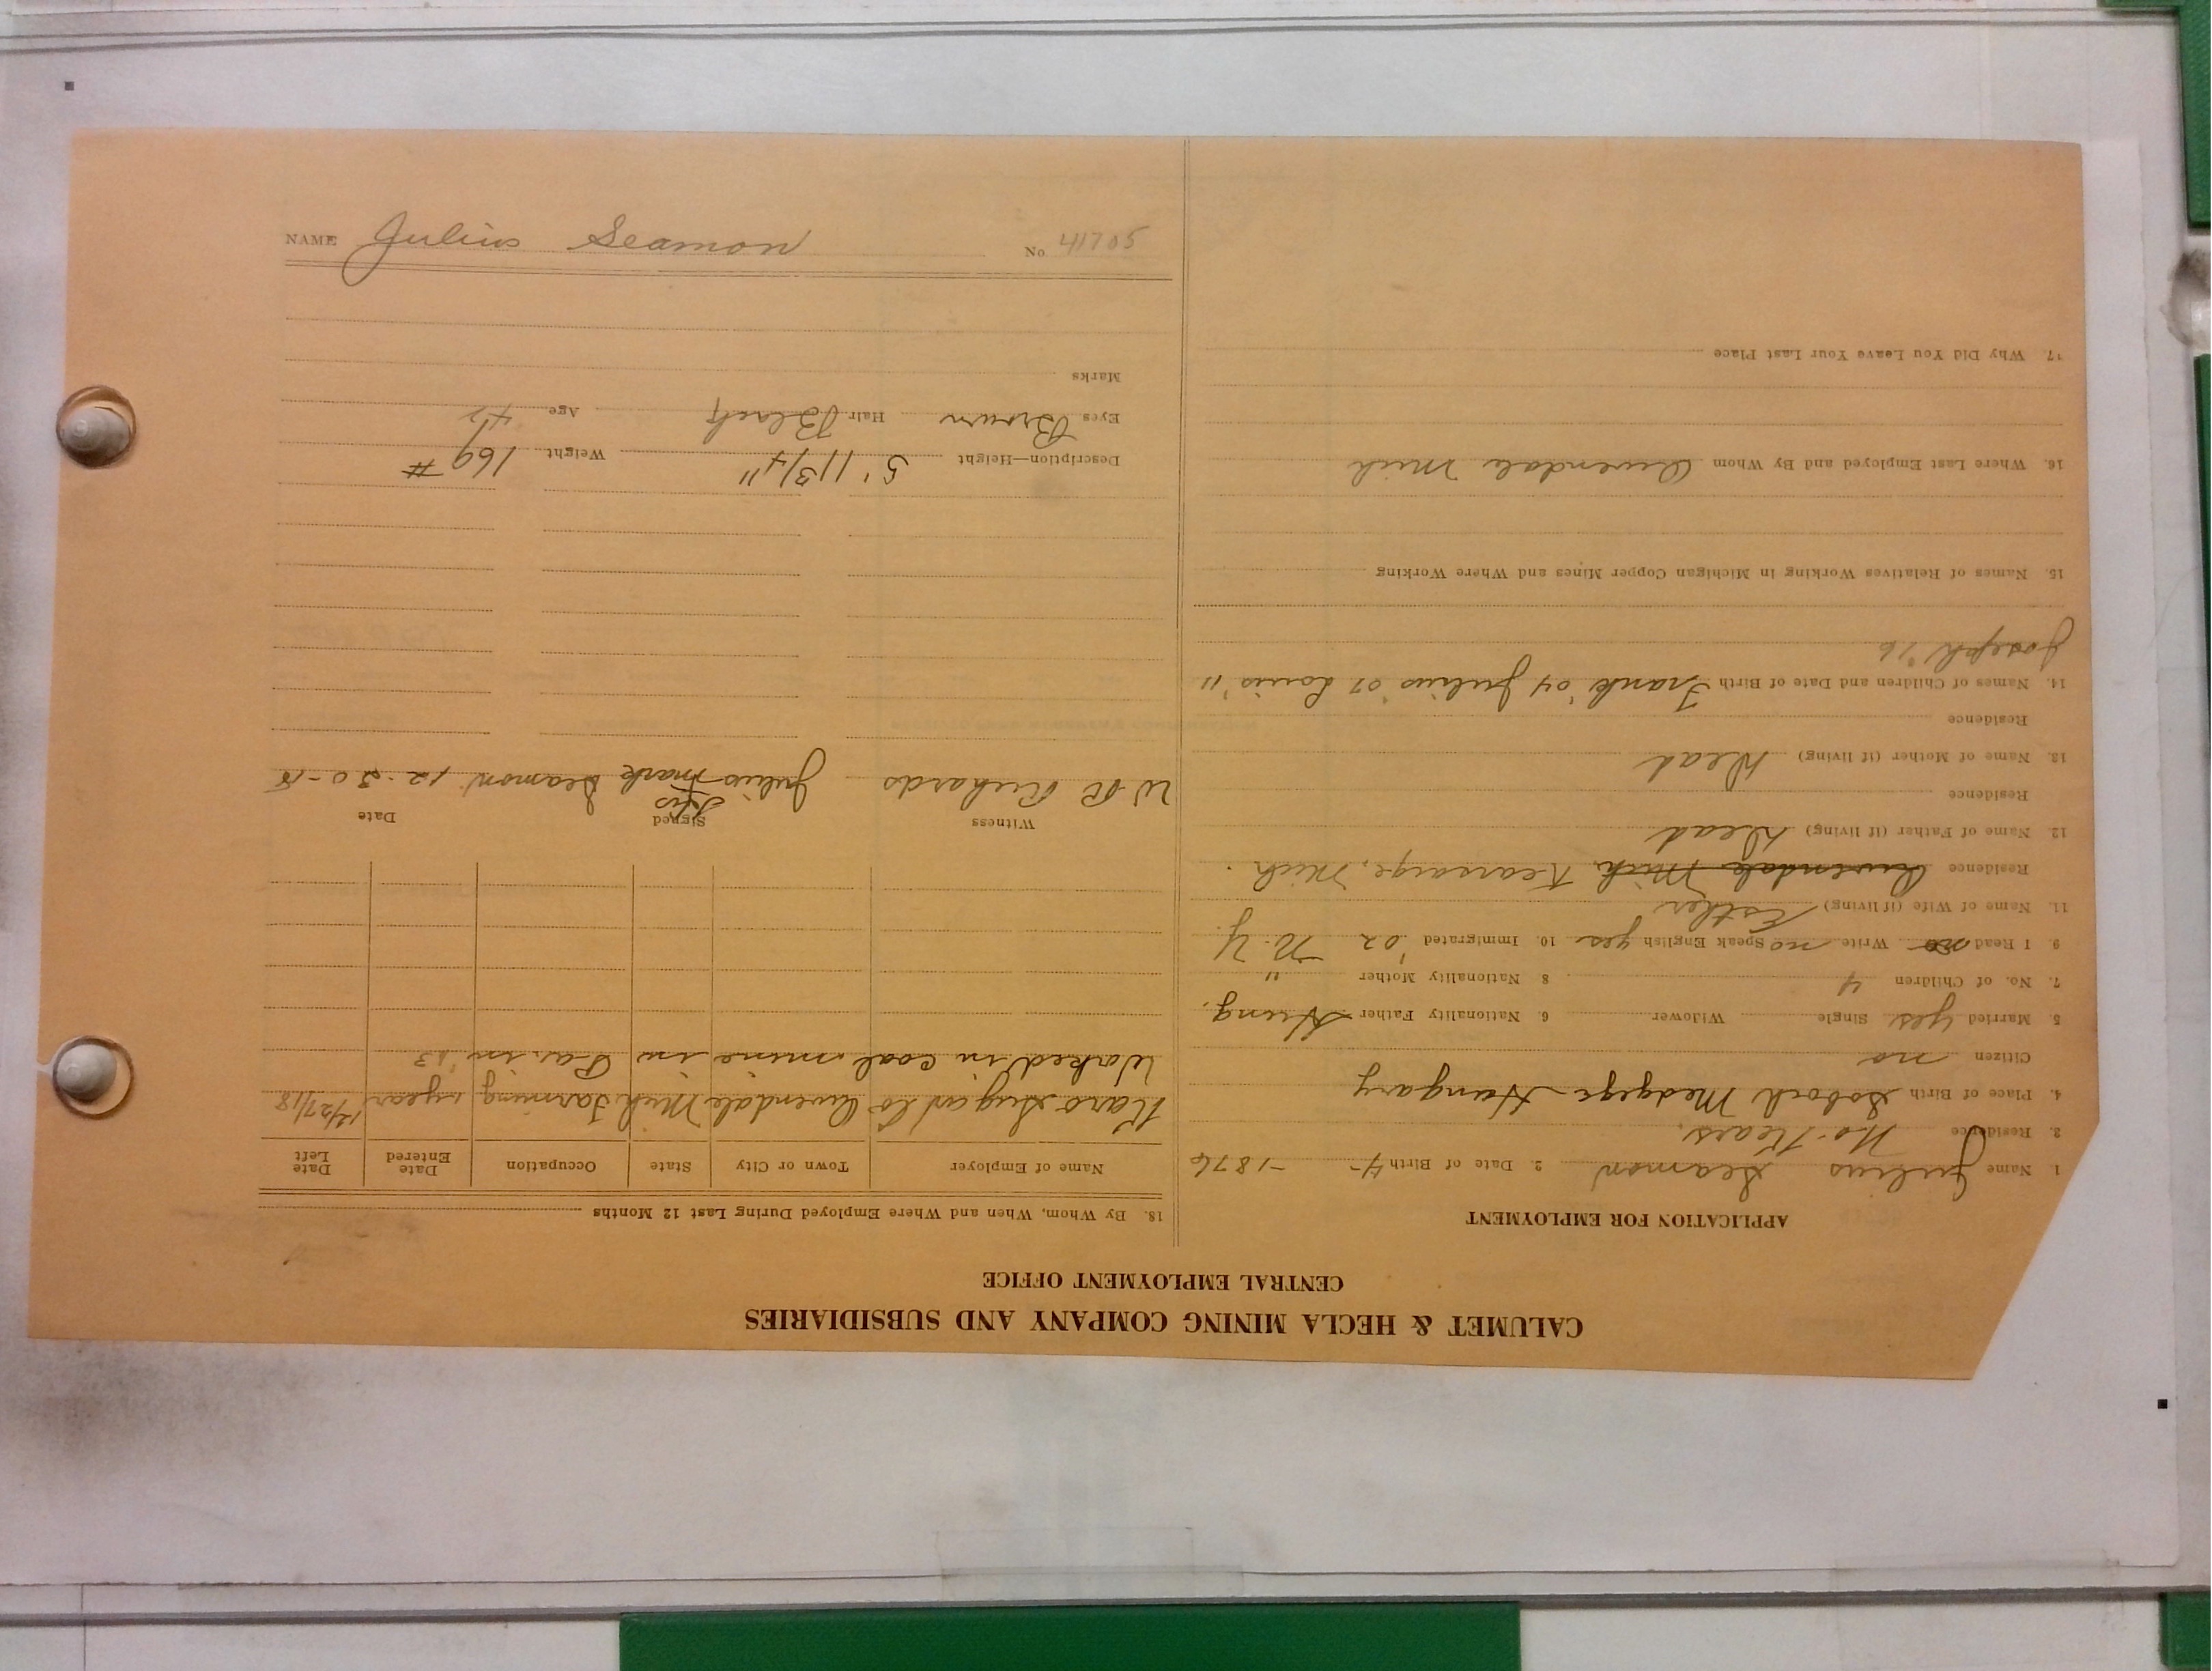 CALUMET & HECLA MINING COMPANY AND SUBSIDIARIES
CENTRAL EMPLOYMENT OFFICE
APPLICATION FOR EMPLOYMENT
1. Name Julius Seamon 2. Date of Birth 4- -1876
2. Residence No. Kears.
4. Place of Birth Hungary
Citizen no
5 Married yes Single Widower 6. Nationality Father Hung.
7. No. of Children 4 8 Nationality Mother "
9. I Read no Write no Speak English yes 10. Immigrated '02 N.Y.
11. Name of Wife (if living) Esther
Residence Owendale Mich Kearsarge, Mich.
12. Name of Father (if living) Dead
Residence
13. Name of Mother (if living) Dead
Residence
14. Names of Children and Date of Birth Frank '04 Julius '07 Louis '11
Joseph '16
15. Names of Relatives Working in Michigan Copper Mines and Where Working
16. Where Last Employed and By Whom Owendale Mich
17. Why Did You Leave Your Last Place
18. By Whom, When and Where Employed During Last 12 Months
Name of Employer Town or City State Occupation Date Entered Date Left
Owendale Mich Farming 1 year 12/27/18
Worked in coal mine in Pa. in '13
Witness Signed Date
W R Richards Julius His mark Seamon 12-30-18
Description—Height 5' 11 3/4" Weight 169 #
Eyes Brown Hair Black Age 42
Marks
NAME Julius Seamon No 41705